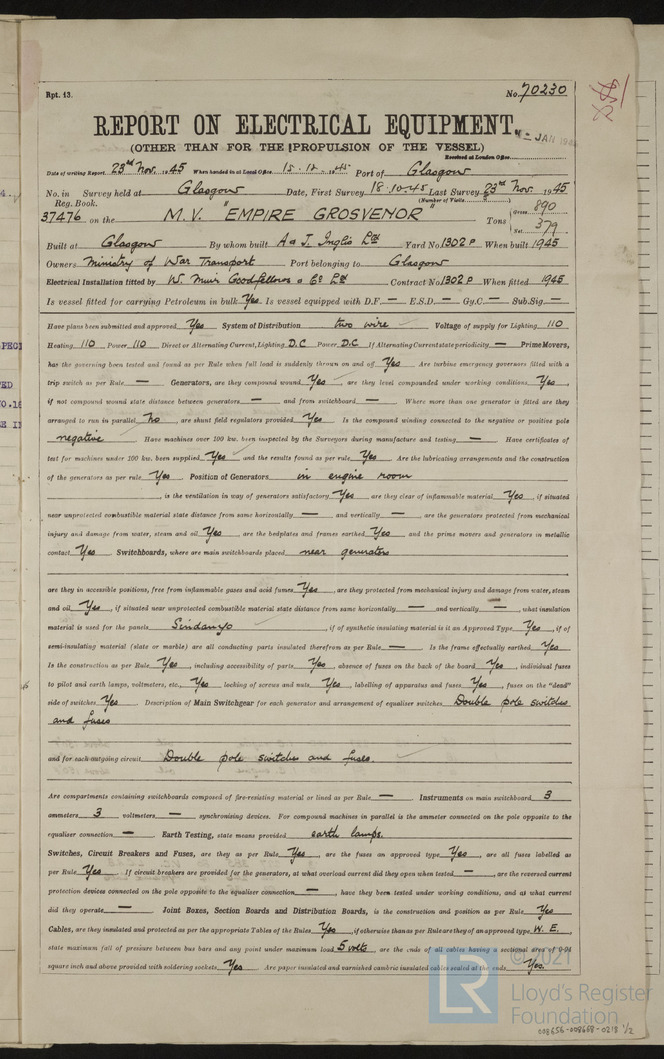 Rpt. 13.
No. 70230
REPORT ON ELECTRICAL EQUIPMENT.
JAN
(OTHER THAN FOR THE PROPULSION OF THE VESSEL)
Received at London Office
Date of writing Report 23rd Nov. 1945 When handed in at Local Office 15.12.1945 Port of Glasgow
No. in Survey held at Glasgow Date, First Survey 18.10.45 Last Survey 23rd Nov. 1945
Reg. Book. (Number of Visits)
37476 on the M.V. "EMPIRE GROSVENOR" Tons Gross 890
Net 379
Built at Glasgow By whom built A & J. Inglis Ltd Yard No. 1302 P When built 1945
Owners Ministry of War Transport Port belonging to Glasgow
Electrical Installation fitted by W. Muir Goodfellows & Co Ltd Contract No. 1302 P When fitted 1945
Is vessel fitted for carrying Petroleum in bulk Yes Is vessel equipped with D.F. — E.S.D. — Gy.C. — Sub.Sig. —
Have plans been submitted and approved Yes System of Distribution two wire Voltage of supply for Lighting 110
Heating 110 Power 110 Direct or Alternating Current, Lighting D.C Power D.C If Alternating Current state periodicity — Prime Movers,
has the governing been tested and found as per Rule when full load is suddenly thrown on and off Yes Are turbine emergency governors fitted with a
trip switch as per Rule — Generators, are they compound wound Yes, are they level compounded under working conditions Yes,
if not compound wound state distance between generators — and from switchboard — Where more than one generator is fitted are they
arranged to run in parallel No, are shunt field regulators provided Yes Is the compound winding connected to the negative or positive pole
negative Have machines over 100 kw. been inspected by the Surveyors during manufacture and testing — Have certificates of
test for machines under 100 kw. been supplied Yes and the results found as per rule Yes Are the lubricating arrangements and the construction
of the generators as per rule Yes Position of Generators in engine room
, is the ventilation in way of generators satisfactory Yes are they clear of inflammable material Yes, if situated
near unprotected combustible material state distance from same horizontally — and vertically — are the generators protected from mechanical
injury and damage from water, steam and oil Yes are the bedplates and frames earthed Yes and the prime movers and generators in metallic
contact Yes Switchboards, where are main switchboards placed near generators
are they in accessible positions, free from inflammable gases and acid fumes Yes, are they protected from mechanical injury and damage from water, steam
and oil Yes, if situated near unprotected combustible material state distance from same horizontally — and vertically —, what insulation
material is used for the panels Sindanyo, if of synthetic insulating material is it an Approved Type Yes, if of
semi-insulating material (slate or marble) are all conducting parts insulated therefrom as per Rule — Is the frame effectually earthed Yes
Is the construction as per Rule Yes, including accessibility of parts Yes, absence of fuses on the back of the board Yes, individual fuses
to pilot and earth lamps, voltmeters, etc. Yes locking of screws and nuts Yes, labelling of apparatus and fuses Yes, fuses on the "dead"
side of switches Yes Description of Main Switchgear for each generator and arrangement of equaliser switches Double pole switches
and fuses
and for each outgoing circuit Double pole switches and fuses.
Are compartments containing switchboards composed of fire-resisting material or lined as per Rule — Instruments on main switchboard 3
ammeters 3 voltmeters — synchronising devices. For compound machines in parallel is the ammeter connected on the pole opposite to the
equaliser connection — Earth Testing, state means provided earth lamps.
Switches, Circuit Breakers and Fuses, are they as per Rule Yes, are the fuses an approved type Yes, are all fuses labelled as
per Rule Yes If circuit breakers are provided for the generators, at what overload current did they open when tested —, are the reversed current
protection devices connected on the pole opposite to the equaliser connection —, have they been tested under working conditions, and at what current
did they operate — Joint Boxes, Section Boards and Distribution Boards, is the construction and position as per Rule Yes
Cables, are they insulated and protected as per the appropriate Tables of the Rules Yes, if otherwise than as per Rule are they of an approved type W. E.,
state maximum fall of pressure between bus bars and any point under maximum load 5 volts are the ends of all cables having a sectional area of 0.04
square inch and above provided with soldering sockets Yes Are paper insulated and varnished cambric insulated cables sealed at the ends Yes.
© 2021
LR
Lloyd's Register
Foundation
008656-008668-0213 1/2